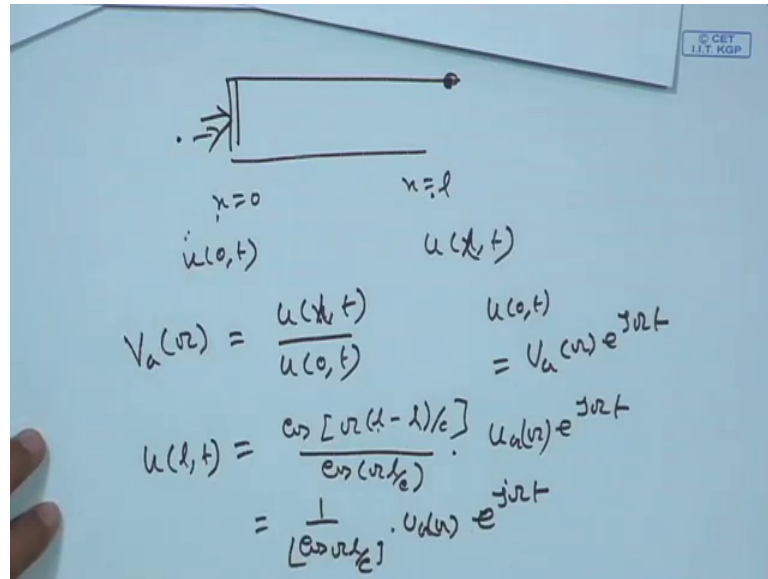 © CET
I.I.T. KGP
x=0
x=l
u(0,t)
u(l,t)
Va(Ω) = u(l,t) / u(0,t)
u(0,t)
= Ua(Ω) e^jΩt
u(l,t) = cos[Ω(l-l)/c] / cos(Ωl/c) . Ua(Ω) e^jΩt
= 1 / [cos Ωl/c] . Ua(Ω) e^jΩt